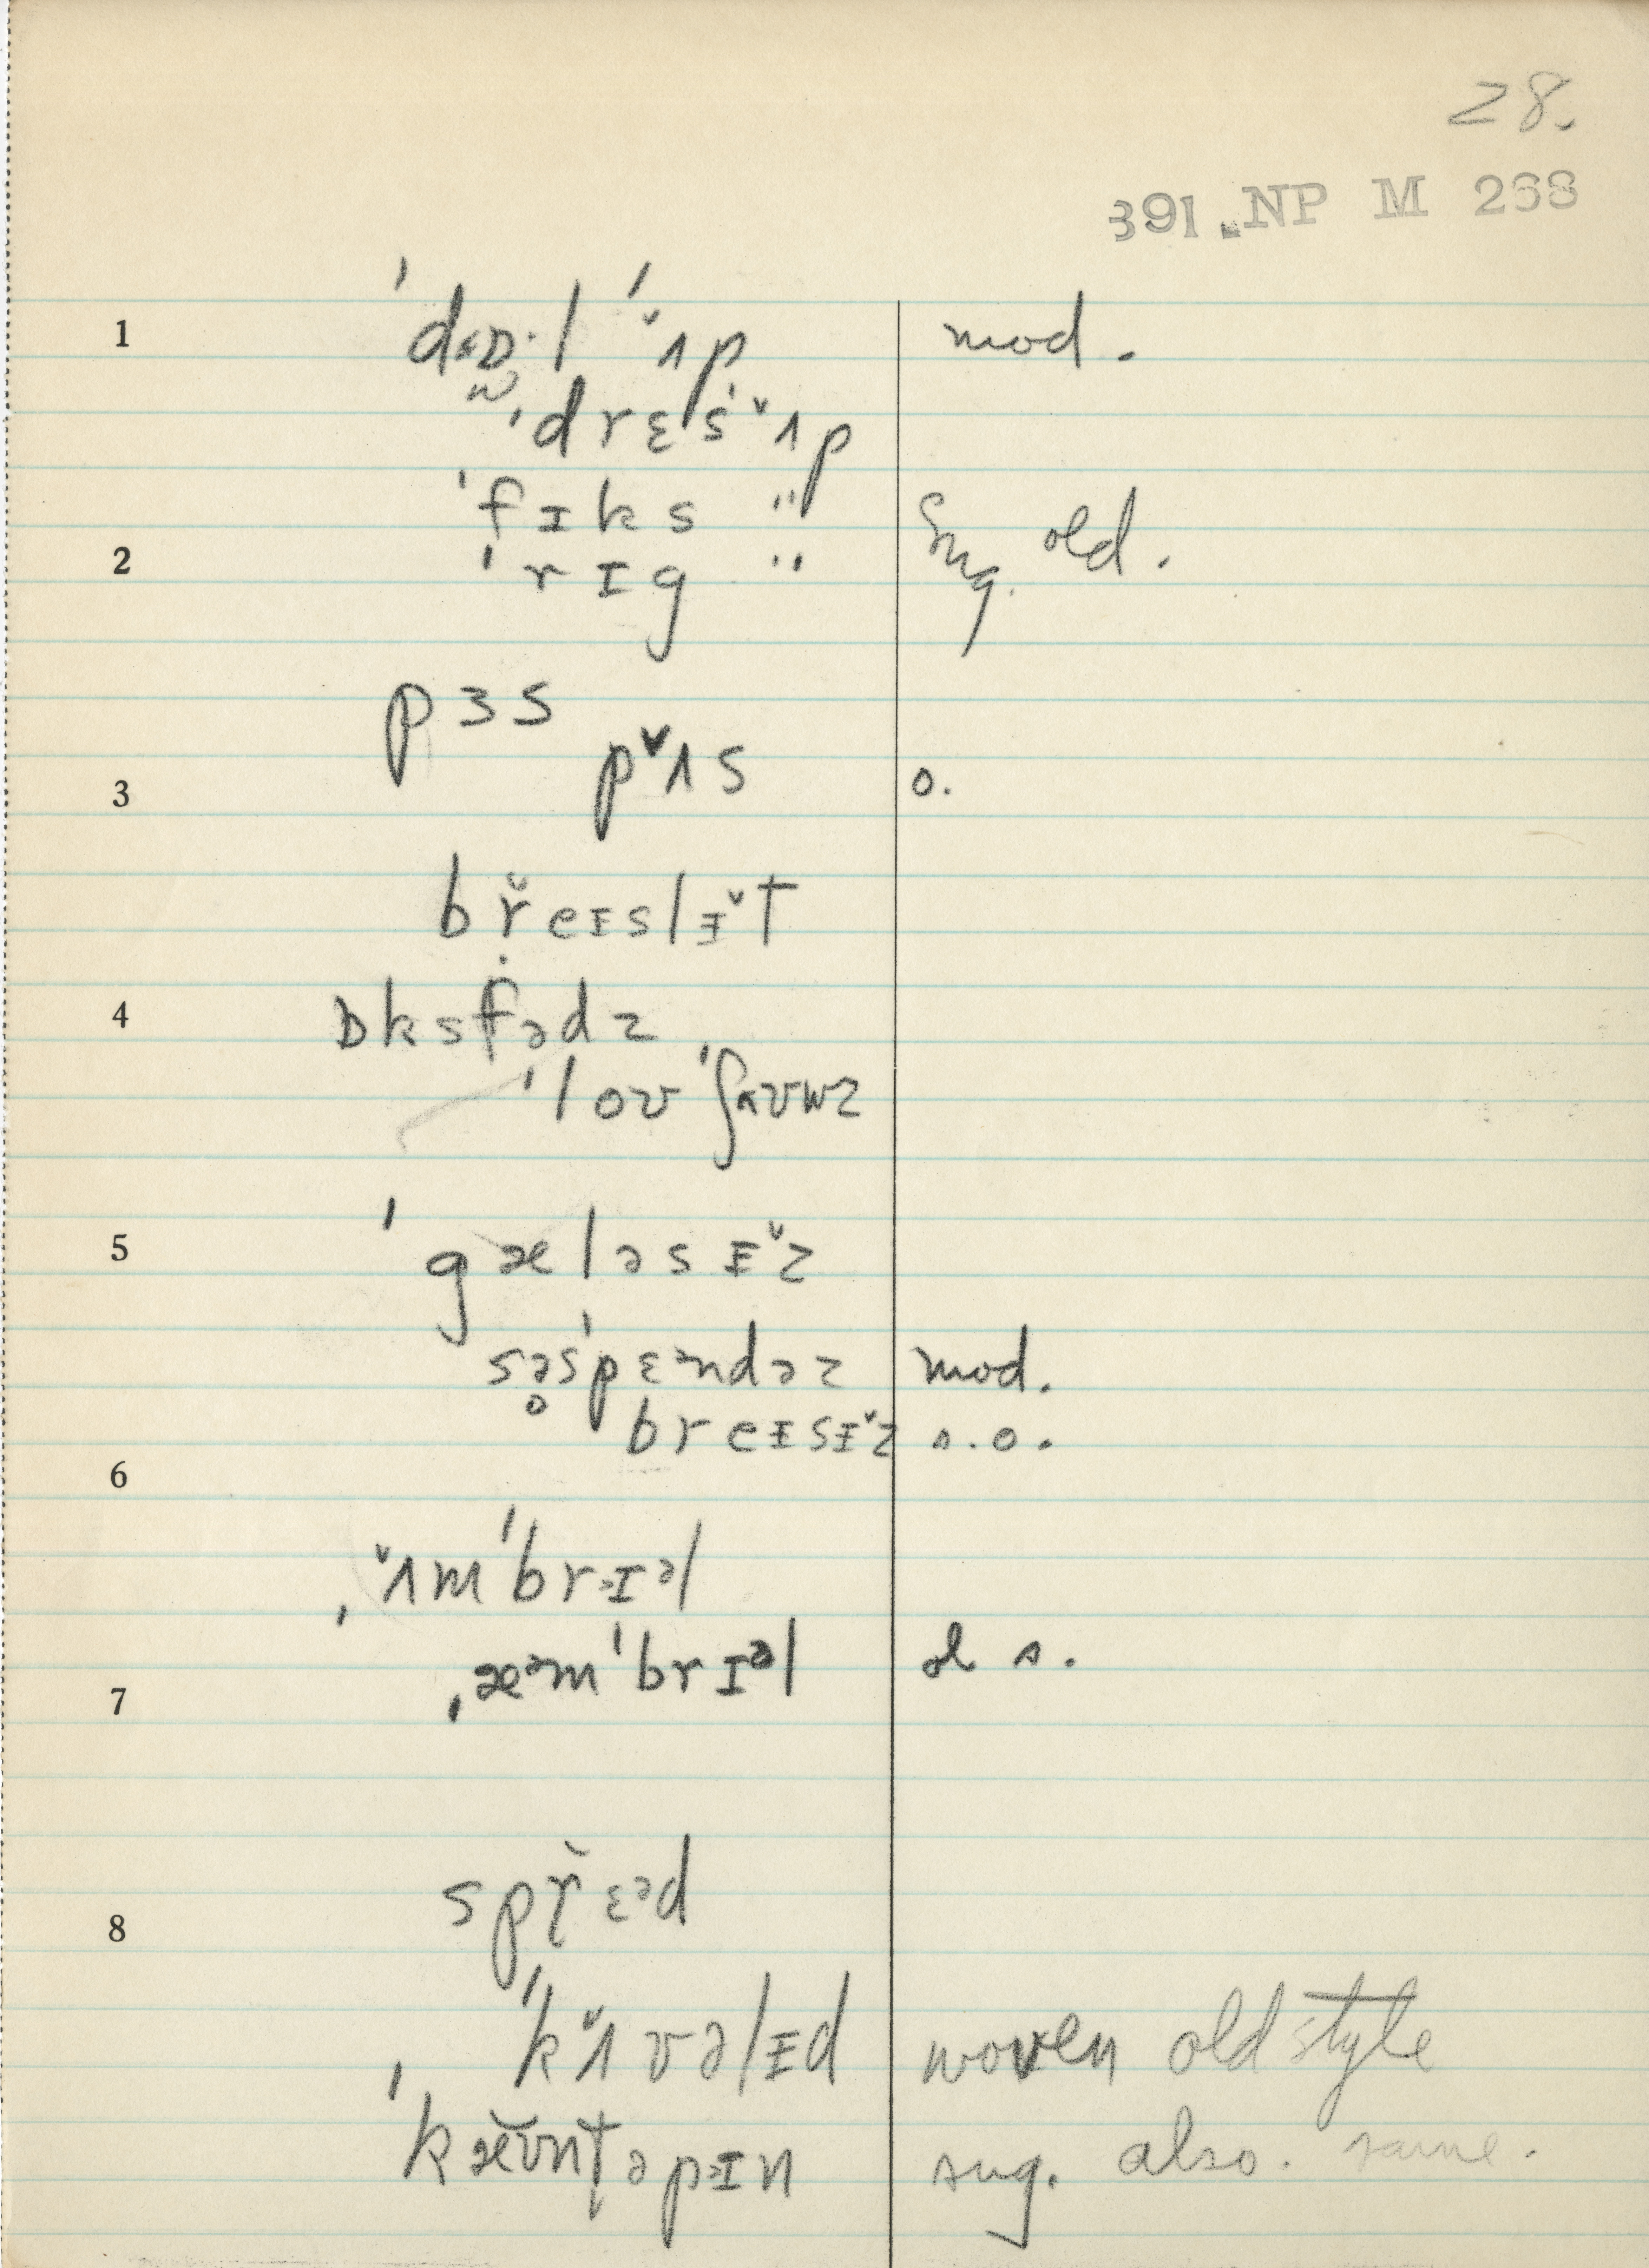 28.
391.NP M 268
1 ˈdɒ·l ˈʌ̌p mod.
ˈdrɛsˈʌ̌p
ˈfɪks "
2 ˈrɪg " sug. old.
pɜs
pʌ̌s
3 o.
br̆eɪslɪ̵̌t
4 ɒksfədz
ˈloʊˈʃ
5 ˈgæləsɪ̵̌z
səsˈpɛᵊndəz mod.
breɪsɪ̵̌z s.o.
6
ˌʌ̌mˈbrɪᵊl
ˌæᵊmˈbrɪᵊl s.
7
spr̆ɛᵊd
8
ˈkʌ̌vəlɪ̵d woven old style
ˈkæ̆ʊntəpɪn sug. also. same.